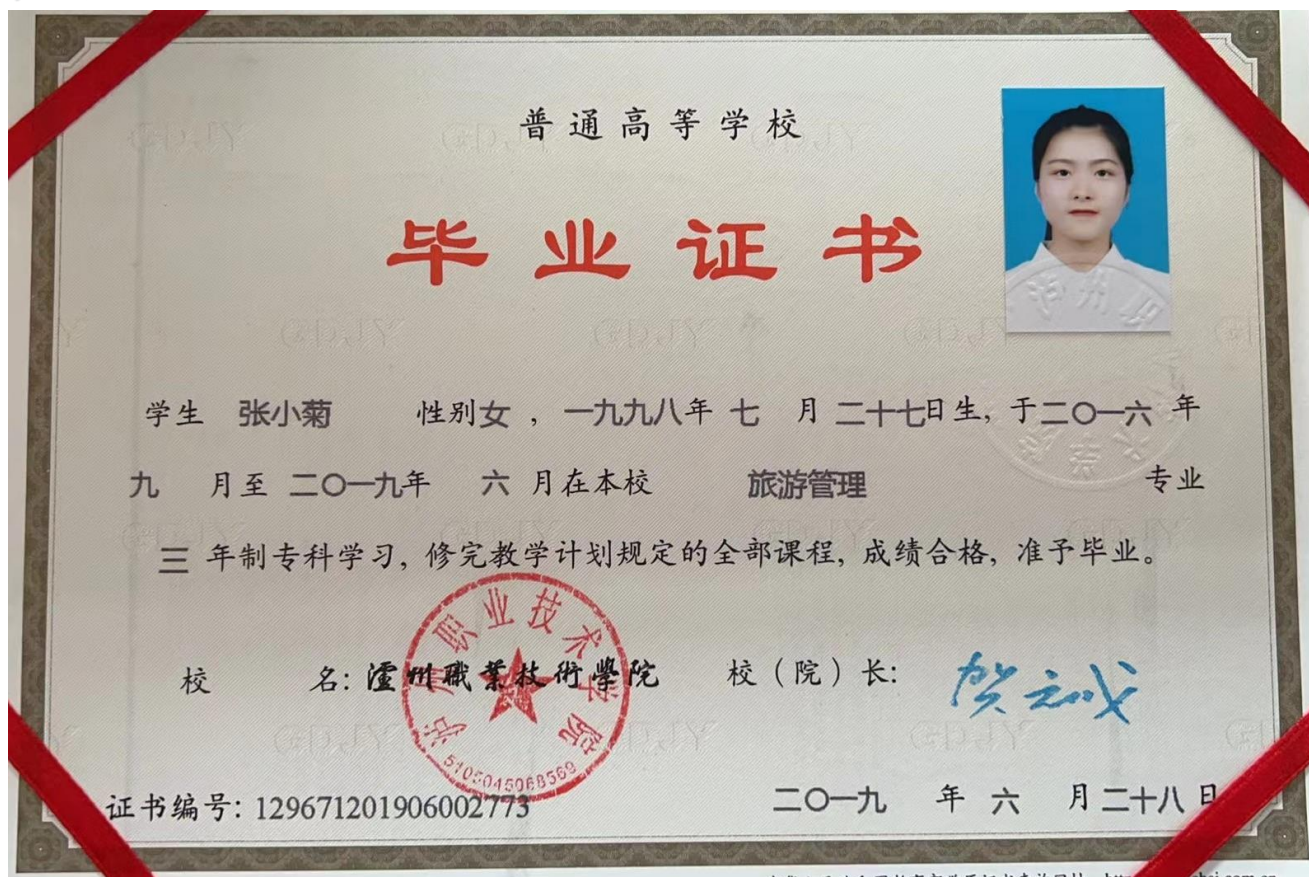 普通高等学校
毕业证书
学生 张小菊 性别女，一九九八年 七 月 二十七日生, 于二〇一六 年
九 月至 二〇一九年 六 月在本校 旅游管理 专业
三 年制专科学习, 修完教学计划规定的全部课程, 成绩合格, 准予毕业。
校 名: 瀘州職業技術學院 校（院）长:
泸州职业技术学院
证书编号: 129671201906002773 二〇一九 年 六 月二十八日